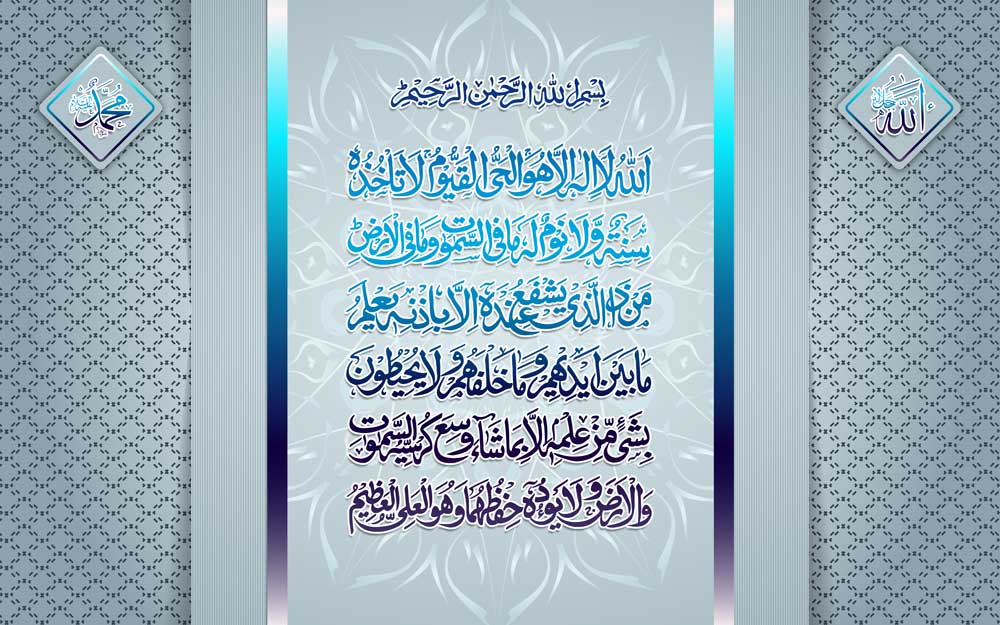 بِسْمِ اللهِ الرَّحْمٰنِ الرَّحِيْمِ
اَللهُ جل جلاله
مُحَمَّد
اَللهُ لَا اِلٰهَ اِلَّا هُوَ الْحَيُّ الْقَيُّوْمُ لَا تَاْخُذُهٗ
سِنَةٌ وَّلَا نَوْمٌ لَهٗ مَا فِي السَّمٰوٰتِ وَمَا فِي الْاَرْضِ
مَنْ ذَا الَّذِيْ يَشْفَعُ عِنْدَهٗ اِلَّا بِاِذْنِهٖ يَعْلَمُ
مَا بَيْنَ اَيْدِيْهِمْ وَمَا خَلْفَهُمْ وَلَا يُحِيْطُوْنَ
بِشَيْءٍ مِّنْ عِلْمِهٖ اِلَّا بِمَا شَآءَ وَسِعَ كُرْسِيُّهُ السَّمٰوٰتِ
وَالْاَرْضَ وَلَا يَـُٔوْدُهٗ حِفْظُهُمَا وَهُوَ الْعَلِيُّ الْعَظِيْمُ